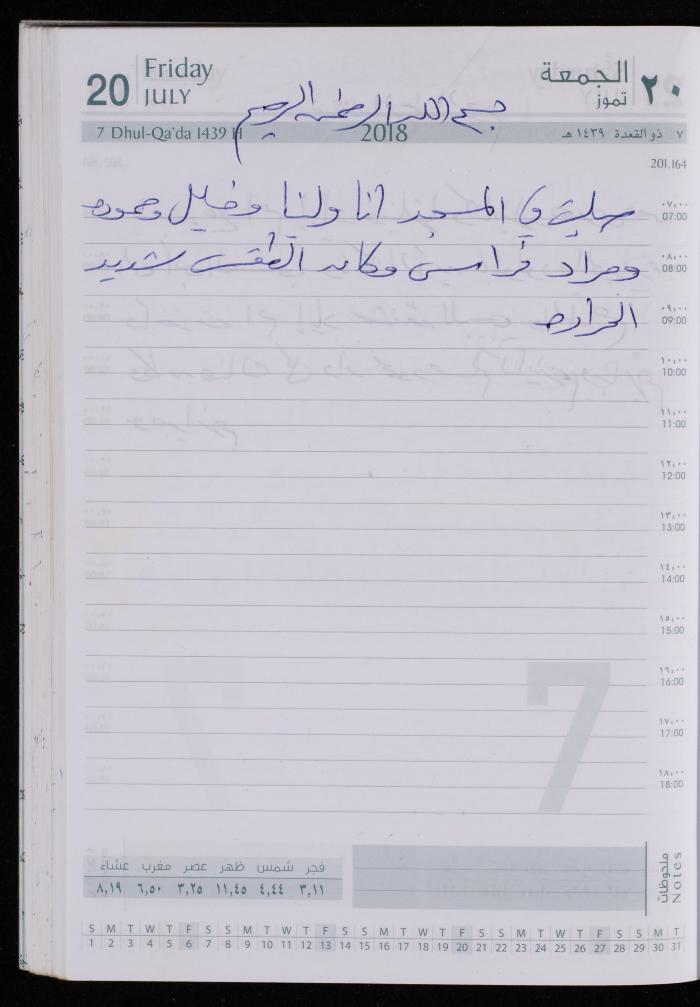 20 Friday JULY الجمعة تموز ٢٠
بسم الله الرحمن الرحيم
7 Dhul-Qa'da 1439 H 2018 ٧ ذو القعدة ١٤٣٩ هـ
201.164
صليت في المسجد انا ولينا وخليل وحموده ٠٧,٠٠ 07:00
ومراد فرامسى وكان الطقس شديد ٠٨,٠٠ 08:00
الحراره ٠٩,٠٠ 09:00
١٠,٠٠ 10:00
١١,٠٠ 11:00
١٢,٠٠ 12:00
١٣,٠٠ 13:00
١٤,٠٠ 14:00
١٥,٠٠ 15:00
١٦,٠٠ 16:00
١٧,٠٠ 17:00
١٨,٠٠ 18:00
7
فجر شمس ظهر عصر مغرب عشاء
٣,١١ ٤,٤٤ ١١,٤٥ ٣,٢٥ ٦,٥٠ ٨,١٩
ملحوظات Notes
S M T W T F S S M T W T F S S M T W T F S S M T W T F S S M T
1 2 3 4 5 6 7 8 9 10 11 12 13 14 15 16 17 18 19 20 21 22 23 24 25 26 27 28 29 30 31